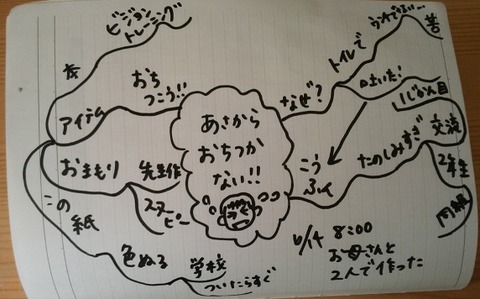 ビジョン
トレーニング
おち
つこう!!
アイテム
おまもり
先生作
スヌー
ピー
この
紙
色ぬる
学校
ついたらすぐ
あさから
おちつか
ない!!
なぜ?
トイレで
吐いた!
1じかん目
こう
ふん
たのしみすぎ
交流
2年生
6/14 8:00
お母さんと
2人で作った